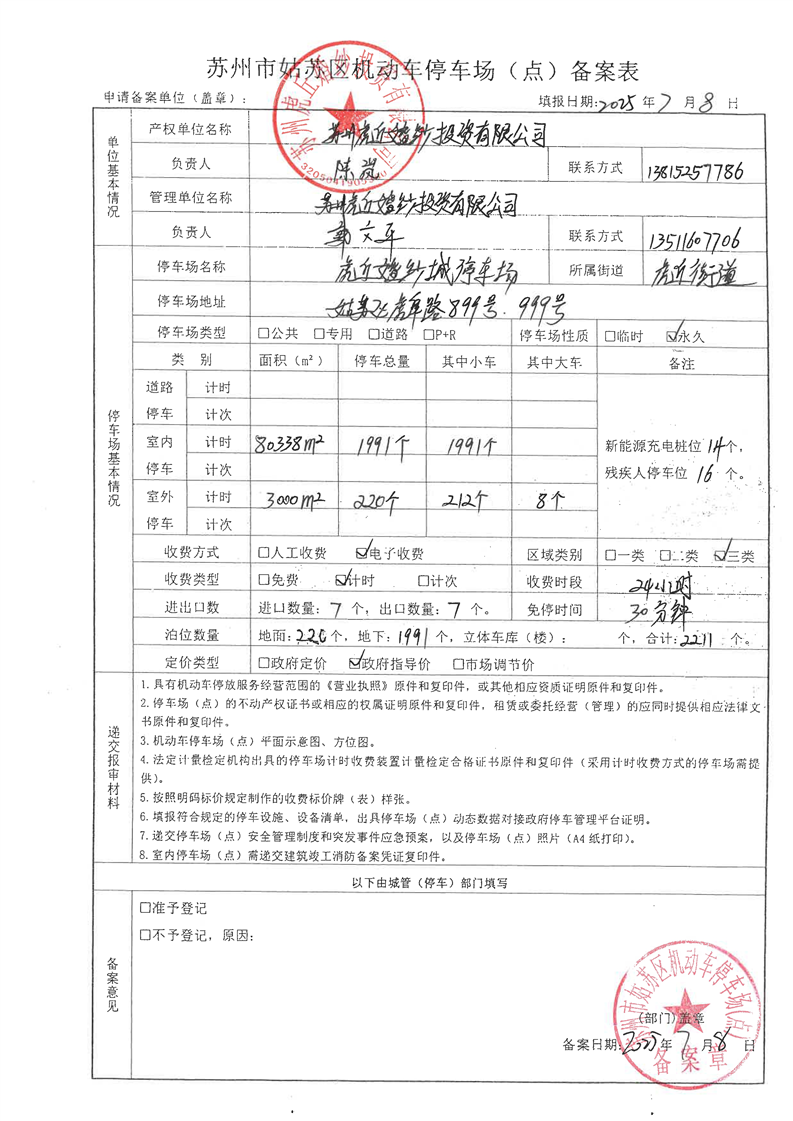 苏州市姑苏区机动车停车场（点）备案表
申请备案单位（盖章）： 填报日期:2025年7月8日
单位基本情况
产权单位名称 苏州虎丘婚纱投资有限公司
负责人 陈岚 联系方式 13815257786
管理单位名称 苏州虎丘婚纱投资有限公司
负责人 文军 联系方式 13511607706
停车场基本情况
停车场名称 虎丘婚纱城停车场 所属街道 虎丘街道
停车场地址 姑苏区虎阜路899号.999号
停车场类型 □公共 □专用 □道路 □P+R 停车场性质 □临时 ☑永久
类 别 面积（m²） 停车总量 其中小车 其中大车 备注
道路停车 计时
计次
室内停车 计时 80338m² 1991个 1991个
计次
新能源充电桩位14个，
残疾人停车位 16 个。
室外停车 计时 3000m² 220个 212个 8个
计次
收费方式 □人工收费 ☑电子收费 区域类别 □一类 □二类 ☑三类
收费类型 □免费 ☑计时 □计次 收费时段 24小时
进出口数 进口数量：7 个，出口数量：7 个。 免停时间 30分钟
泊位数量 地面：220个，地下：1991个，立体车库（楼）： 个，合计：2211 个。
定价类型 □政府定价 ☑政府指导价 □市场调节价
递交报审材料
1.具有机动车停放服务经营范围的《营业执照》原件和复印件，或其他相应资质证明原件和复印件。
2.停车场（点）的不动产权证书或相应的权属证明原件和复印件，租赁或委托经营（管理）的应同时提供相应法律文
书原件和复印件。
3.机动车停车场（点）平面示意图、方位图。
4.法定计量检定机构出具的停车场计时收费装置计量检定合格证书原件和复印件（采用计时收费方式的停车场需提
供）。
5.按照明码标价规定制作的收费标价牌（表）样张。
6.填报符合规定的停车设施、设备清单，出具停车场（点）动态数据对接政府停车管理平台证明。
7.递交停车场（点）安全管理制度和突发事件应急预案，以及停车场（点）照片（A4纸打印）。
8.室内停车场（点）需递交建筑竣工消防备案凭证复印件。
以下由城管（停车）部门填写
备案意见
□准予登记
□不予登记，原因：
(部门)盖章
备案日期:2025年7月8日
苏州虎丘婚纱投资有限公司
苏州市姑苏区机动车停车场(点)
备案章